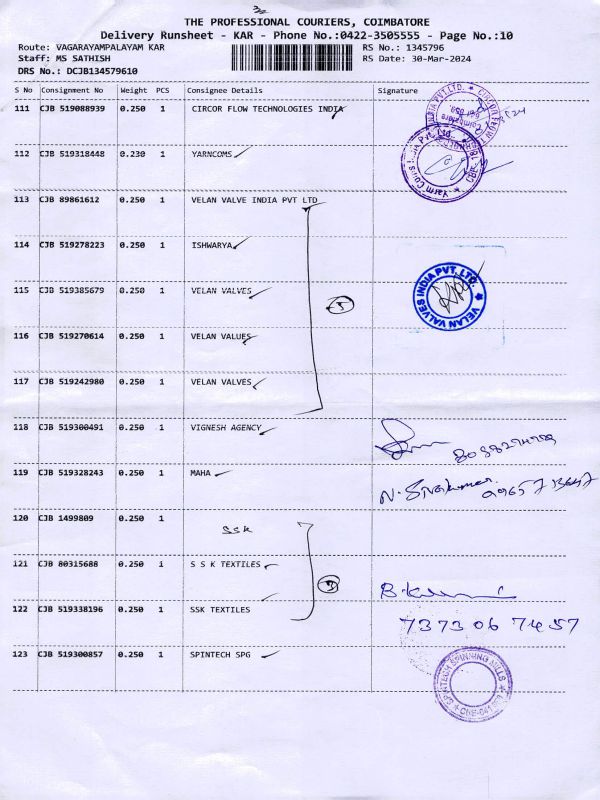 THE PROFESSIONAL COURIERS, COIMBATORE
Delivery Runsheet - KAR - Phone No.:0422-3505555 - Page No.:10
Route: VAGARAYAMPALAYAM KAR RS No.: 1345796
Staff: MS SATHISH RS Date: 30-Mar-2024
DRS No.: DCJB134579610
S No Consignment No Weight PCS Consignee Details Signature
111 CJB 519088939 0.250 1 CIRCOR FLOW TECHNOLOGIES INDIA
112 CJB 519318448 0.230 1 YARNCOMS
113 CJB 89861612 0.250 1 VELAN VALVE INDIA PVT LTD
114 CJB 519278223 0.250 1 ISHWARYA
115 CJB 519385679 0.250 1 VELAN VALVES
VELAN VALVES INDIA PVT. LTD.
5
116 CJB 519270614 0.250 1 VELAN VALUES
117 CJB 519242980 0.250 1 VELAN VALVES
118 CJB 519300491 0.250 1 VIGNESH AGENCY
119 CJB 519328243 0.250 1 MAHA
N. Sivakumar
120 CJB 1499809 0.250 1
SSK
121 CJB 80315688 0.250 1 S S K TEXTILES
3
122 CJB 519338196 0.250 1 SSK TEXTILES
73730 67457
123 CJB 519300857 0.250 1 SPINTECH SPG
SPINTECH SPINNING MILLS